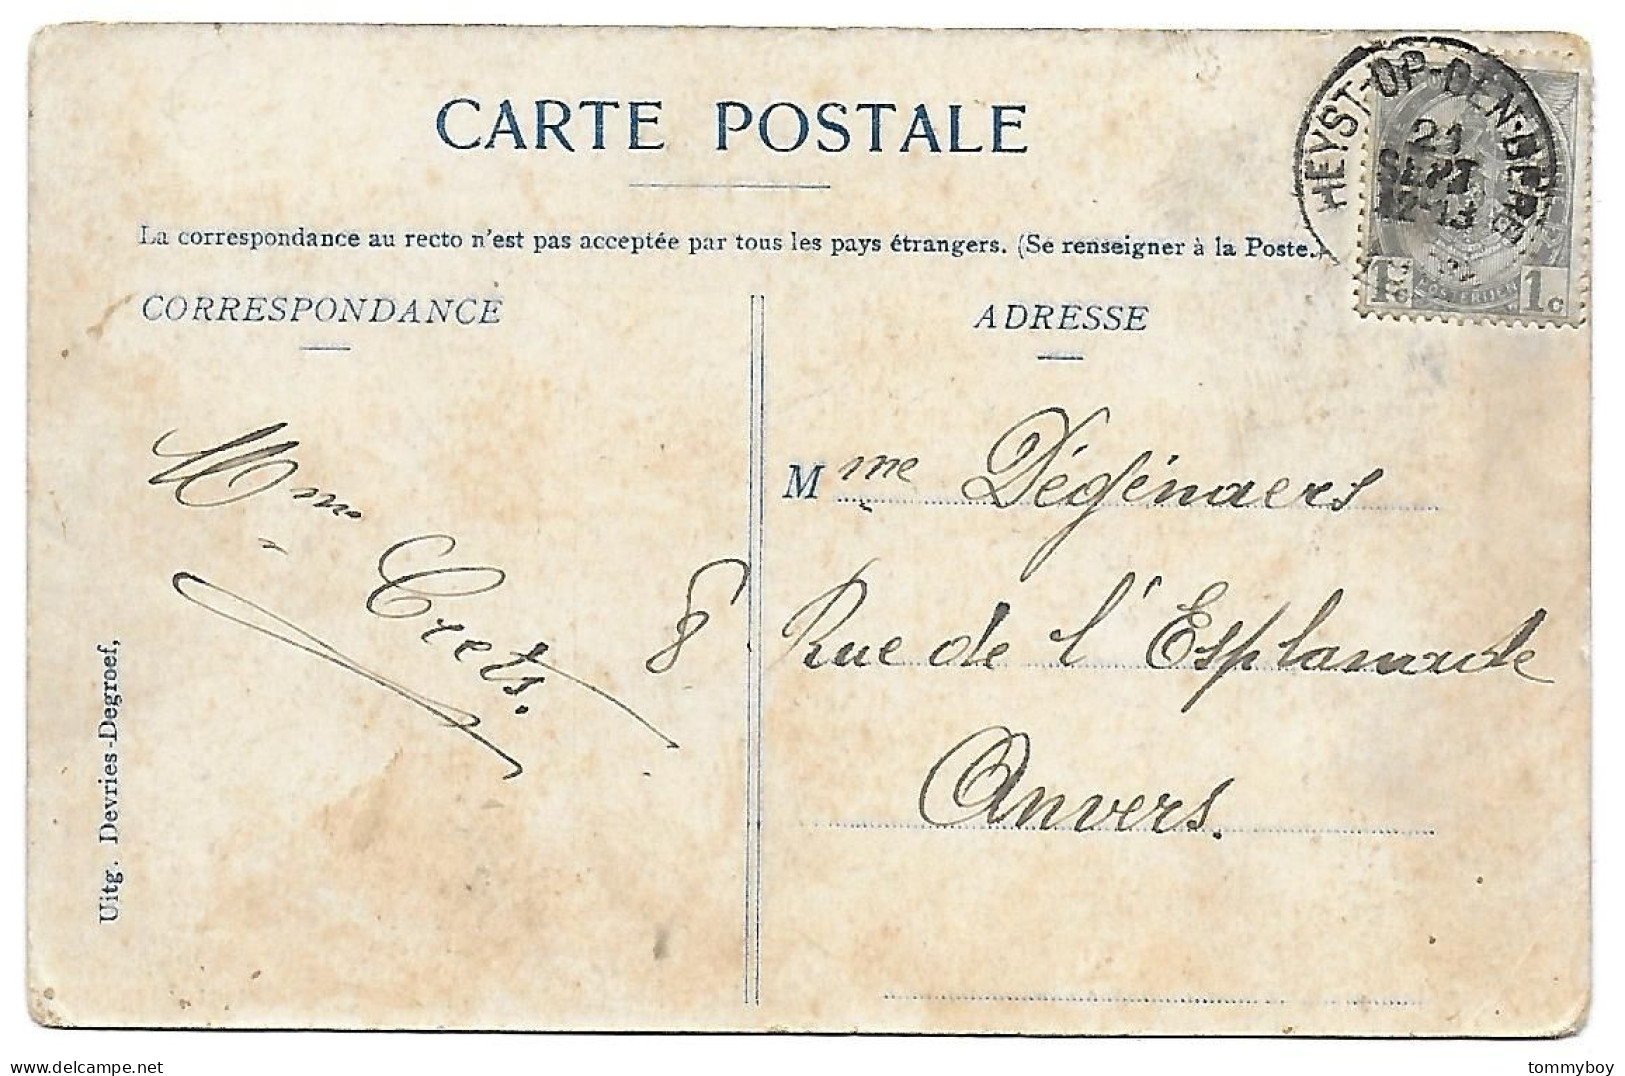 CARTE POSTALE
La correspondance au recto n'est pas acceptée par tous les pays étrangers. (Se renseigner à la Poste.)
CORRESPONDANCE
ADRESSE
HEYST-OP-DEN-BERG
21
SEPT
12-13
1c
POSTERIJEN
1c
Mme Crets.
Mme Dégénaers
8 Rue de l'Esplanade
Anvers.
Uitg. Devries-Degroef,
delcampe.net
tommyboy